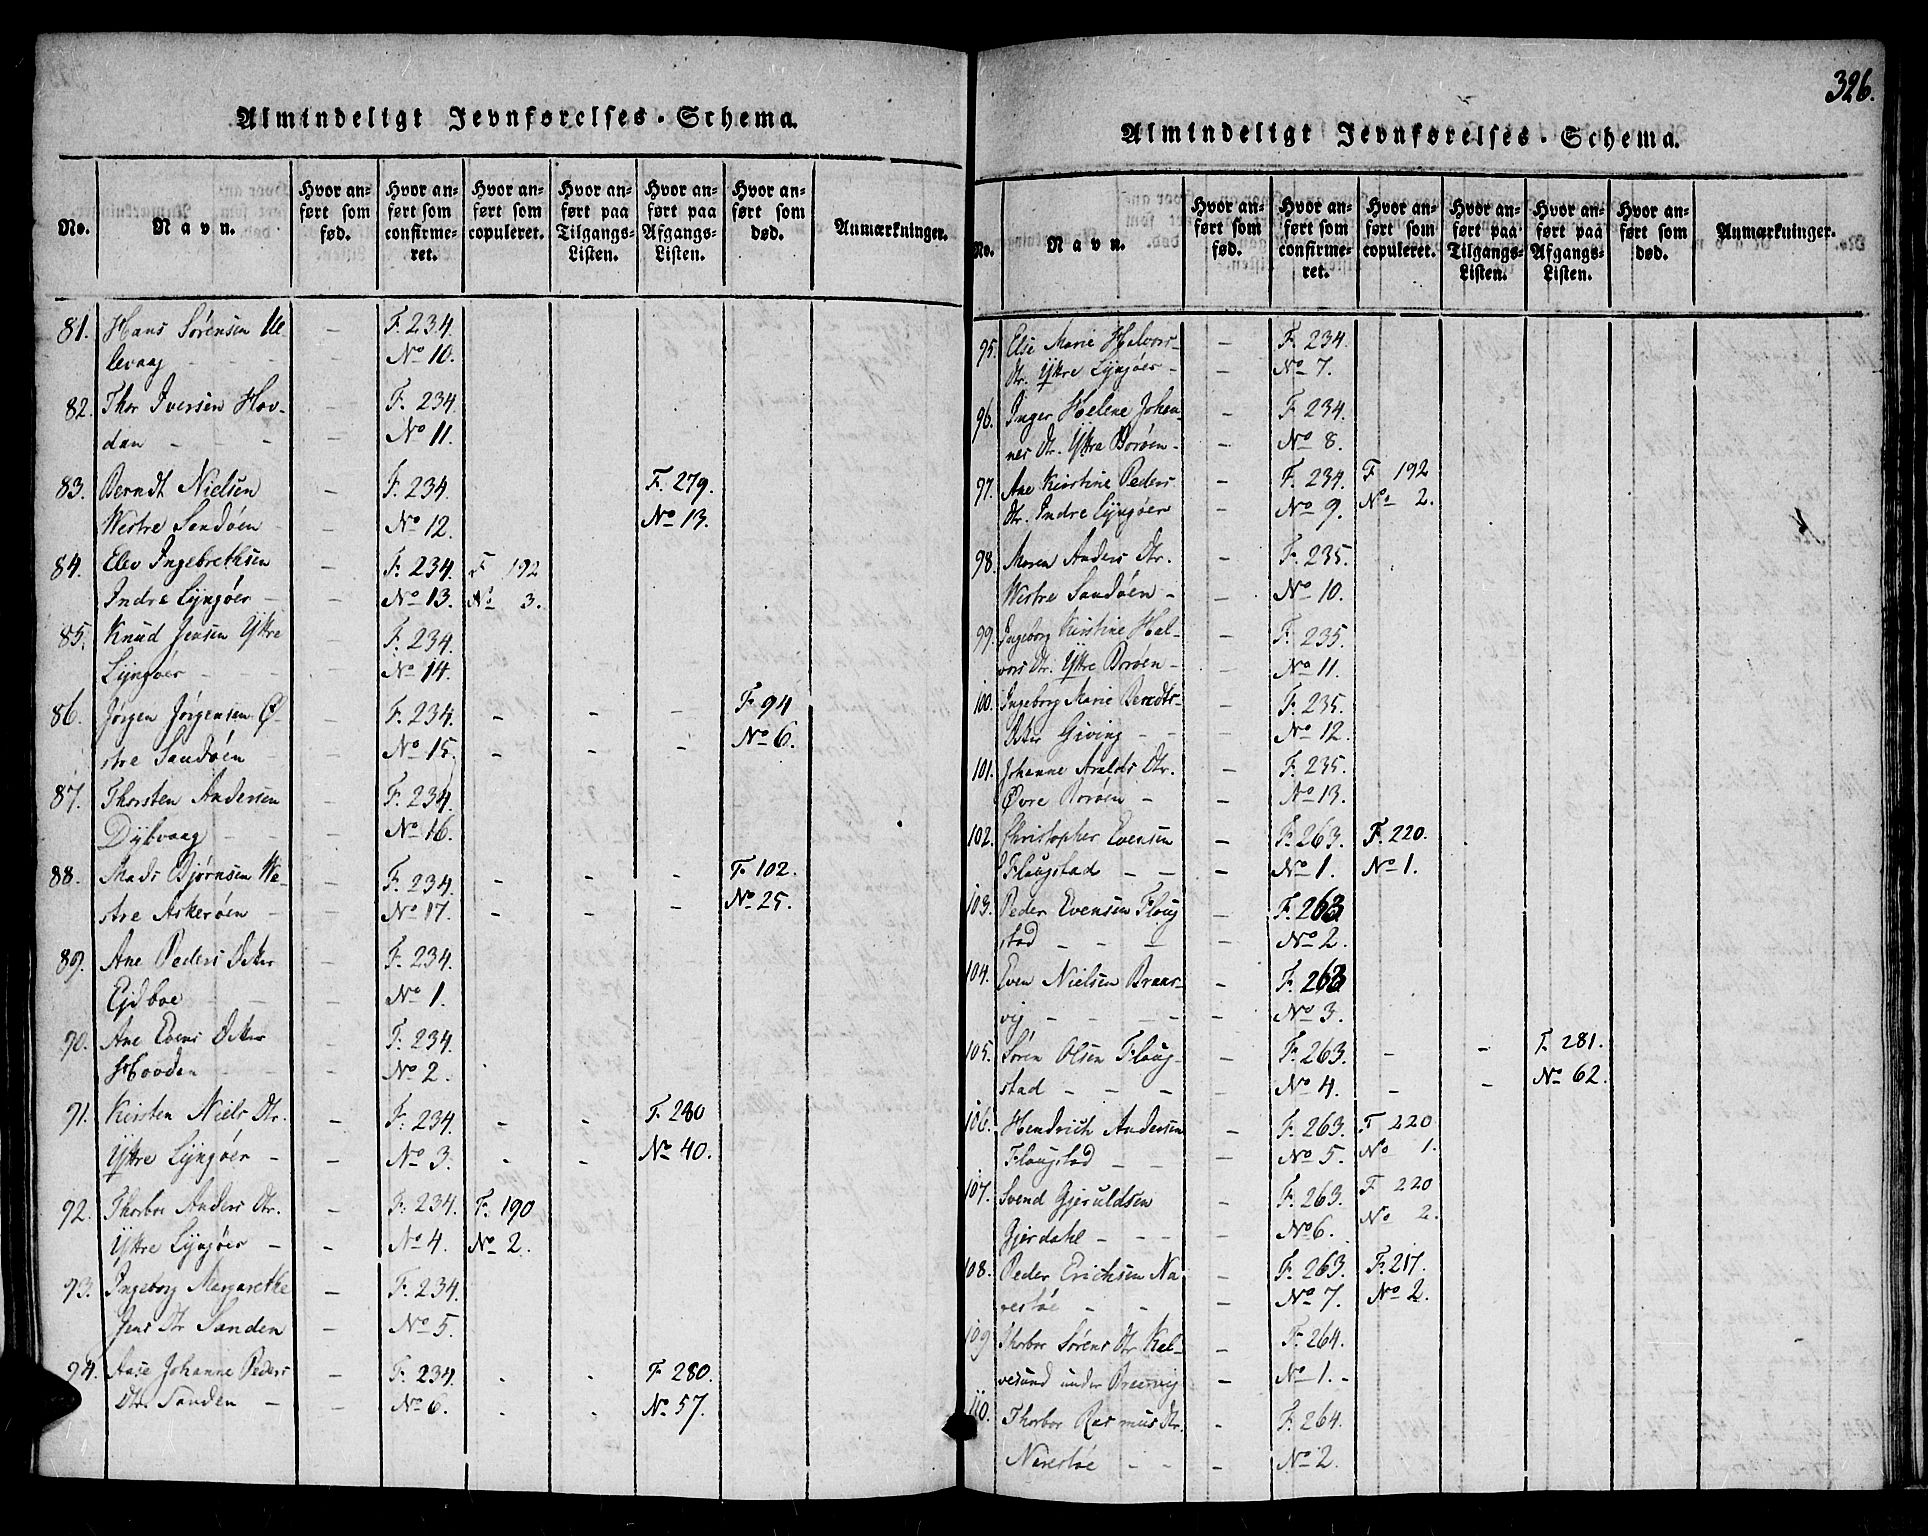 326.
Almindeligt Jevnførelses-Schema.
No. Navn. Hvor anført som fød. Hvor anført som confirmeret. Hvor anført som copuleret. Hvor anført paa Tilgangs-Listen. Hvor anført paa Afgangs-Listen. Hvor anført som død. Anmærkninger.
81. Hans Sørensen Ue- – F. 234.
levaag – – – No 10.
82. Thor Iversen Hov- – F. 234
dan – – – – No 11.
83. Berndt Nielsen – F. 234. F. 279.
Westre Sandøen – – No 12. No 13.
84. Elev Ingebrethsen – F. 234. F 192
Indre Lyngøer – – No 13. No 3.
85. Knud Jensen Yttre – F. 234.
Lyngøer – – – No 14.
86. Jørgen Jørgensen Ø- – F. 234. – – – F. 94
stre Sandøen – – No 15. – – – No 6.
87. Thorsten Andersen – F. 234.
Dybvaag – – – No 16.
88. Mads Bjørnsen We- – F. 234. – – – F. 102.
stre Askerøen – – No 17. – – – No 25.
89. Ane Peders Dtter – F. 234.
Ejdboe – – – No 1.
90. Ane Evens Dtter – F. 234.
Hovden – – – No 2.
91. Kirsten Niels Dtr. – F. 234. – – F. 280
Yttre Lyngøer – – No 3. – – No 40.
92. Thorbor Anders Dtr. – F. 234. F. 190
Yttre Lyngøer – – No 4. No 2.
93. Ingeborg Margarethe – F. 234.
Jens Dtr Sanden – No 5.
94. Aase Johanne Peders – F. 234. – – F. 280.
Dtr. Sanden – – No 6. – – No 57.
Almindeligt Jevnførelses-Schema.
No. Navn. Hvor anført som fød. Hvor anført som confirmeret. Hvor anført som copuleret. Hvor anført paa Tilgangs-Listen. Hvor anført paa Afgangs-Listen. Hvor anført som død. Anmærkninger.
95. Else Marie Halvors- – F. 234.
dtr. Yttre Lyngøer – – No 7.
96. Inger Helene Johan- – F. 234.
nes Dtr. Yttre Borøen – – No 8.
97. Ane Kirstine Peders – F. 234. F 192
Dtr. Indre Lyngøer – No 9. No 2.
98. Maren Anders Dtr. – F. 235.
Westre Sandøen – – No 10.
99. Ingeborg Kirstine Hal- – F. 235.
vors Dtr. Yttre Borøen – – No 11.
100. Ingeborg Marie Berndts- – F. 235.
Dtter Giving – – – No 12.
101. Johanne Aralds Dtr. – F. 235.
Øvre Borøen – – No 13.
102. Christopher Evensen – F. 263. F. 220.
Flaugstad – – – No 1. No 1.
103. Peder Evensen Flaug – F. 263
stad – – – – No 2.
104. Even Nielsen Brans- – F. 263
vig – – – – – No 3.
105. Søren Olsen Flaug- – F. 263. – – F. 281.
stad – – – – No 4. – – No 62.
106. Hendrich Andersen – F. 263. F 220
Flaugstad – – – No 5. No 1.
107. Svend Gjeruldsen – F. 263. F 220
Gjerdahl – – – – No 6. No 2.
108. Peder Erichsen Na- – F. 263. F. 217.
vestøe – – – No 7. No 2.
109 Thorbor Sørens Dtr Kal- – F. 264.
vesund under – No 1. –
110. Thorbor Rasmus Dtr. – F. 264.
Narestøe – – – No 2.